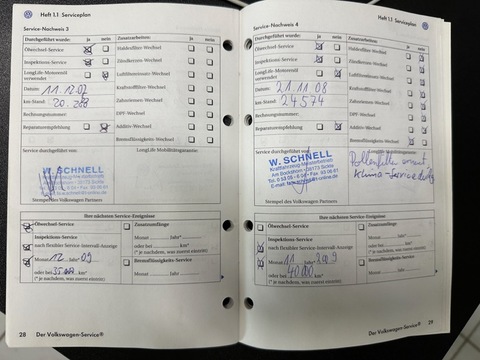 Heft 1.1 Serviceplan
Service-Nachweis 3
Durchgeführt wurde: ja nein
Ölwechsel-Service
Inspektions-Service
LongLife-Motorenöl
verwendet
Datum: 11.12.07
km-Stand: 20.288
Rechnungsnummer:
Reparaturempfehlung
Zusatzarbeiten: ja nein
Pollenfilter-Wechsel
Zündkerzen-Wechsel
Luftfiltereinsatz-Wechsel
Kraftstofffilter-Wechsel
Zahnriemen-Wechsel
DPF-Wechsel
Additiv-Wechsel
Bremsflüssigkeits-Wechsel
Service durchgeführt von:
LongLife Mobilitätsgarantie:
W. SCHNELL
Stempel des Volkswagen Partners
Ihre nächsten Service-Ereignisse
Ölwechsel-Service
Inspektions-Service
nach flexibler Service-Intervall-Anzeige
Monat 12 Jahr 09
oder bei km*
(* je nachdem, was zuerst eintritt)
Zusatzumfänge
Monat Jahr*
oder bei km*
(* je nachdem, was zuerst eintritt)
Bremsflüssigkeits-Service
Monat Jahr
28 Der Volkswagen-Service®
Heft 1.1 Serviceplan
Service-Nachweis 4
Durchgeführt wurde: ja nein
Ölwechsel-Service
Inspektions-Service
LongLife-Motorenöl
verwendet
Datum: 21.11.08
km-Stand: 24574
Rechnungsnummer:
Reparaturempfehlung
Zusatzarbeiten: ja nein
Zündkerzen-Wechsel
Luftfiltereinsatz-Wechsel
Kraftstofffilter-Wechsel
Zahnriemen-Wechsel
DPF-Wechsel
Additiv-Wechsel
Bremsflüssigkeits-Wechsel
Service durchgeführt von:
LongLife Mobilitätsgarantie:
W. SCHNELL
Kraftfahrzeug-Meisterbetrieb
Pollenfilter erneuert
Klima-Service
Stempel des Volkswagen Partners
Ihre nächsten Service-Ereignisse
Ölwechsel-Service
Inspektions-Service
nach flexibler Service-Intervall-Anzeige
Monat 11 Jahr 2009
oder bei 40000 km*
(* je nachdem, was zuerst eintritt)
Zusatzumfänge
Monat Jahr*
oder bei km*
(* je nachdem, was zuerst eintritt)
Bremsflüssigkeits-Service
Monat Jahr
Der Volkswagen-Service® 29